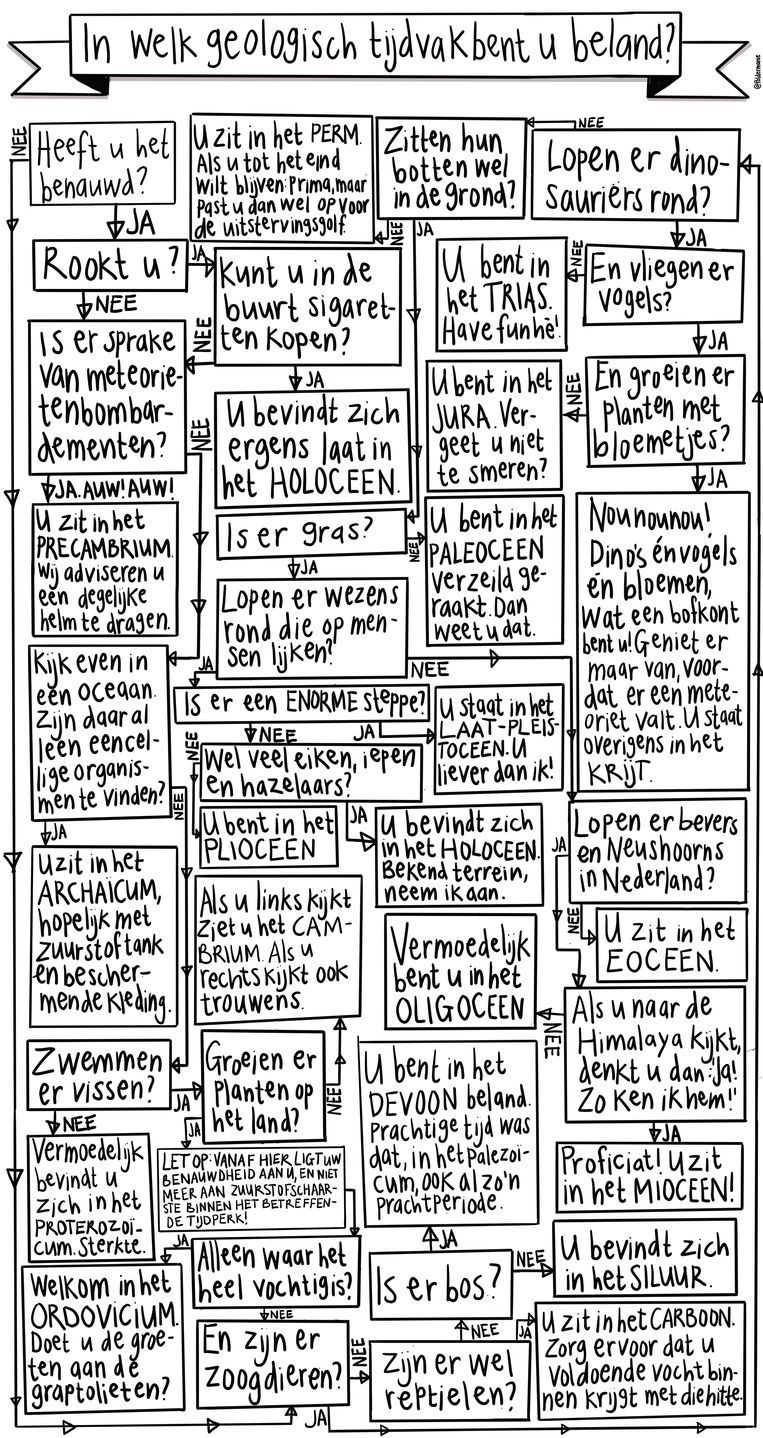 In welk geologisch tijdvak bent u beland?
@flidermans
NEE
Heeft u het
benauwd?
JA
Rookt u?
JA
NEE
U zit in het PERM.
Als u tot het eind
wilt blijven: Prima, maar
past u dan wel op voor
de uitstervingsgolf.
Zitten hun
botten wel
in de grond?
NEE
NEE
JA
Lopen er dino-
sauriërs rond?
JA
Kunt u in de
buurt sigaret-
ten kopen?
NEE
JA
U bent in
het TRIAS.
Have fun hè!
NEE
En vliegen er
vogels?
JA
Is er sprake
van meteorie-
tenbombar-
dementen?
NEE
JA. AUW! AUW!
U bevindt zich
ergens laat in
het HOLOCEEN.
U bent in het
JURA. Ver-
geet u niet
te smeren?
NEE
En groeien er
planten met
bloemetjes?
JA
U zit in het
PRECAMBRIUM.
Wij adviseren u
een degelijke
helm te dragen.
Is er gras?
NEE
JA
U bent in het
PALEOCEEN
verzeild ge-
raakt. Dan
weet u dat.
Nounounou!
Dino's én vogels
én bloemen,
wat een bofkont
bent u! Geniet er
maar van, voor-
dat er een mete-
oriet valt. U staat
overigens in het
KRIJT.
Lopen er wezens
rond die op men-
sen lijken?
JA
NEE
Kijk even in
een oceaan.
Zijn daar al
leen eencel-
lige organis-
men te vinden?
NEE
JA
Is er een ENORME steppe?
NEE
JA
U staat in het
LAAT-PLEIS-
TOCEEN. U
liever dan ik!
Wel veel eiken, iepen
en hazelaars?
NEE
JA
U bent in het
PLIOCEEN
U bevindt zich
in het HOLOCEEN.
Bekend terrein,
neem ik aan.
Lopen er bevers
en Neushoorns
in Nederland?
JA
NEE
U zit in het
EOCEEN.
U zit in het
ARCHAICUM,
hopelijk met
zuurstoftank
en bescher-
mende kleding.
Als u links kijkt
ziet u het CAM-
BRIUM. Als u
rechts kijkt ook
trouwens.
Vermoedelijk
bent u in het
OLIGOCEEN
NEE
Als u naar de
Himalaya kijkt,
denkt u dan: "Ja!
Zo ken ik hem!"
JA
Proficiat! U zit
in het MIOCEEN!
Zwemmen
er vissen?
JA
NEE
Groeien er
planten op
het land?
NEE
JA
U bent in het
DEVOON beland.
Prachtige tijd was
dat, in het Palezoï-
cum, ook al zo'n
prachtperiode.
Vermoedelijk
bevindt u
zich in het
PROTEROZOÏ-
CUM. Sterkte.
LET OP: VANAF HIER LIGT UW
BENAUWDHEID AAN U, EN NIET
MEER AAN ZUURSTOFSCHAAR-
STE BINNEN HET BETREFFEN-
DE TIJDPERK!
JA
Alleen waar het
heel vochtig is?
NEE
Welkom in het
ORDOVICIUM.
Doet u de groe-
ten aan de
graptolieten?
En zijn er
zoogdieren?
NEE
JA
JA
Is er bos?
NEE
U bevindt zich
in het SILUUR.
Zijn er wel
reptielen?
NEE
JA
U zit in het CARBOON.
Zorg ervoor dat u
voldoende vocht bin-
nen krijgt met die hitte.